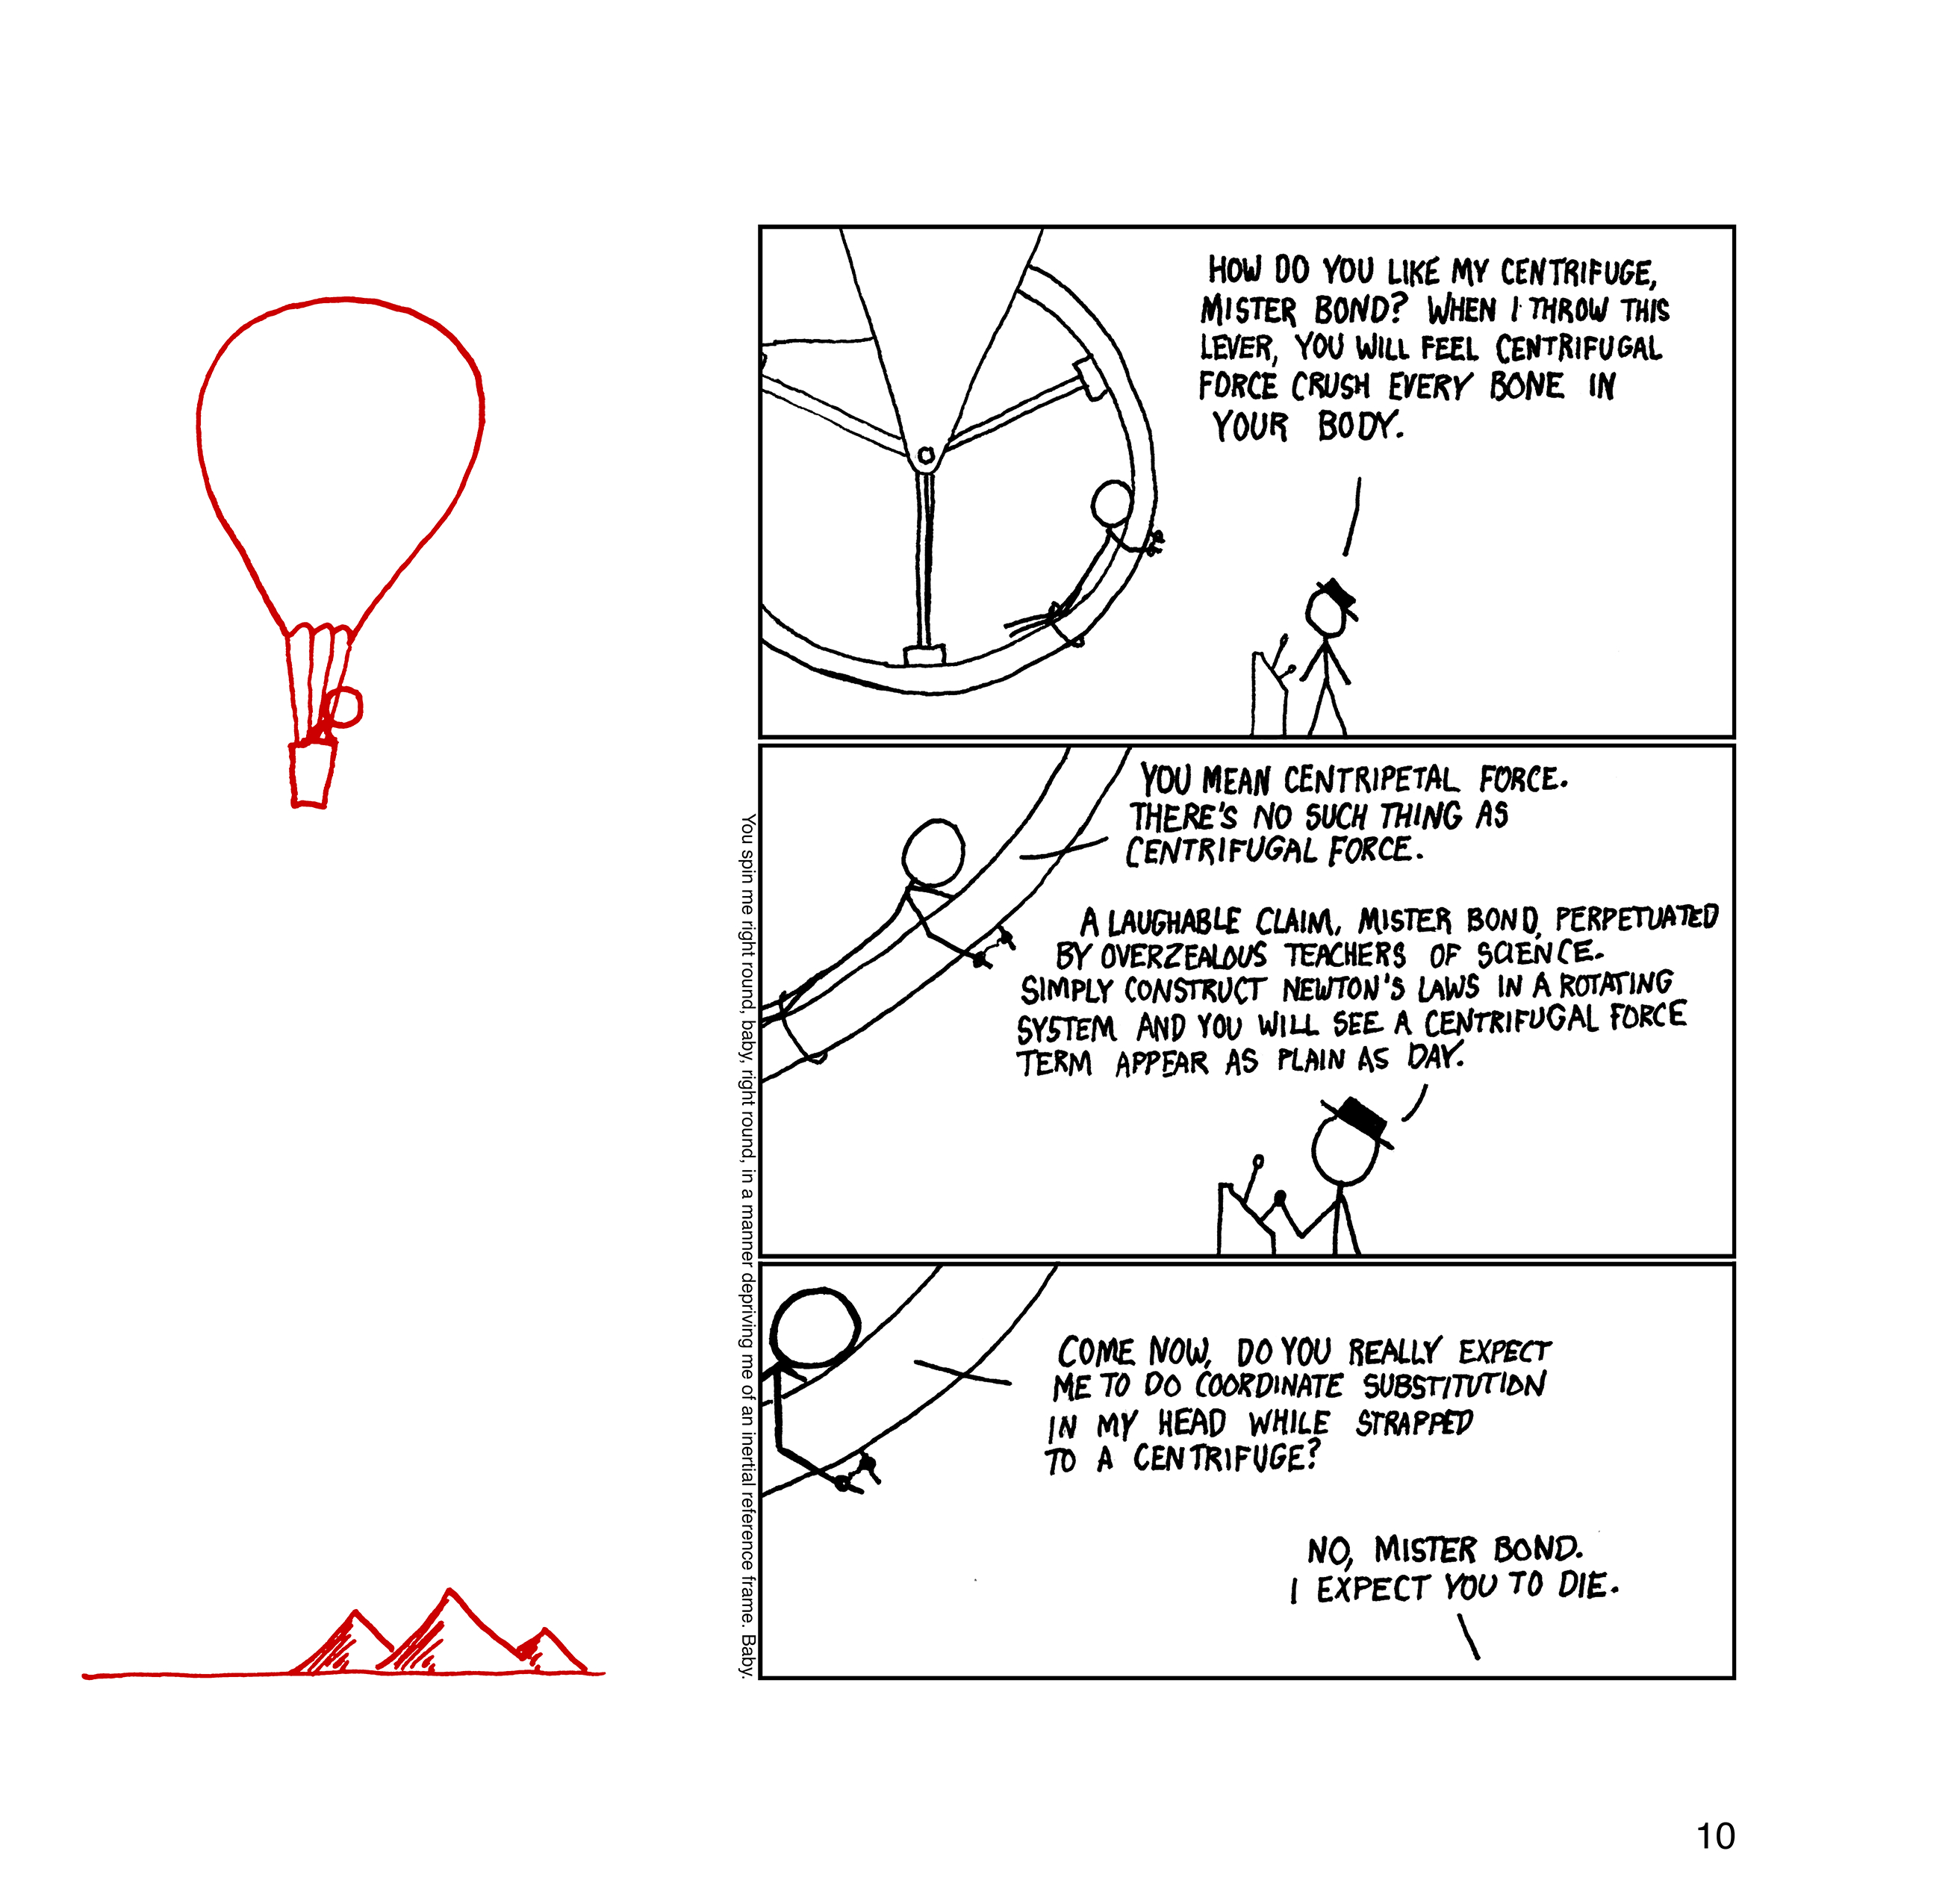 HOW DO YOU LIKE MY CENTRIFUGE,
MISTER BOND? WHEN I THROW THIS
LEVER, YOU WILL FEEL CENTRIFUGAL
FORCE CRUSH EVERY BONE IN
YOUR BODY.
YOU MEAN CENTRIPETAL FORCE.
THERE'S NO SUCH THING AS
CENTRIFUGAL FORCE.
A LAUGHABLE CLAIM, MISTER BOND, PERPETUATED
BY OVERZEALOUS TEACHERS OF SCIENCE.
SIMPLY CONSTRUCT NEWTON'S LAWS IN A ROTATING
SYSTEM AND YOU WILL SEE A CENTRIFUGAL FORCE
TERM APPEAR AS PLAIN AS DAY.
COME NOW, DO YOU REALLY EXPECT
ME TO DO COORDINATE SUBSTITUTION
IN MY HEAD WHILE STRAPPED
TO A CENTRIFUGE?
NO, MISTER BOND.
I EXPECT YOU TO DIE.
You spin me right round, baby, right round, in a manner depriving me of an inertial reference frame. Baby.
10